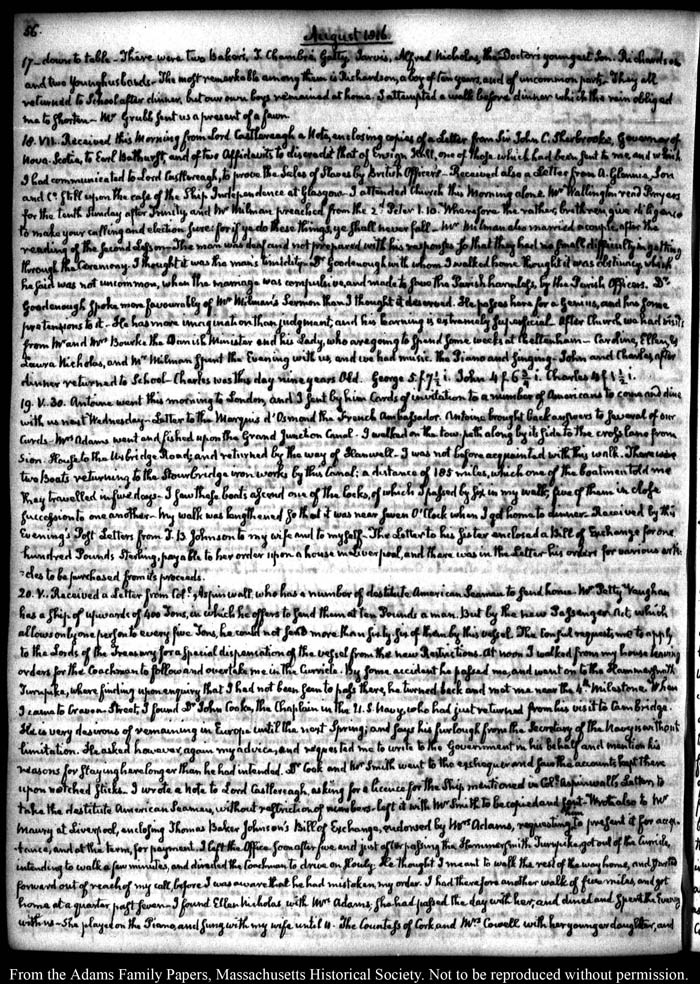 56.
August 1816
17 — down to table — There were two Bakers, T. Chambré, Gatty, Jarvis, Alfred Nicholas, the Doctor's youngest Son. Richardson
and two Younghusbands — The most remarkable among them is Richardson, a boy of ten years, and of uncommon parts — They all
returned to School after dinner, but our own boys remained at home. I attempted a walk before dinner which the rain obliged
me to shorten — Mr Grubb sent us a present of a fawn.
18. VII. Received this Morning from Lord Castlereagh a Note, enclosing copies of a Letter from Sir John C. Sherbrooke, Governor of
Nova-Scotia, to Earl Bathurst, and of two Affidavits to discredit that of Ensign Hill, one of those which had been sent to me and which
I had communicated to Lord Castlereagh, to prove the Sales of Slaves by British Officers — Received also a Letter from A. Glennie, Son
and Co. Still upon the case of the Ship Independence at Glasgow — I attended Church this Morning alone. Mr Wallington read Prayers
for the tenth Sunday after Trinity and Mr Milman preached from the 2d Peter 1. 10. Wherefore the rather, brethren, give diligence
to make your calling and election sure: for if ye do these things, ye shall never fall — Mr Milman also married a couple, after the
reading of the Second Lesson — The man was deaf and not prepared with his responses so that they had no small difficulty in getting
through the Ceremony. I thought it was the man's timidity — Dr Goodenough with whom I walked home thought it was obstinacy which
he said was not uncommon, when the marriage was compulsive, and made to save the Parish harmless, by the Parish Officers. Dr
Goodenough spoke more favourably of Mr Milman's Sermon than I thought it deserved. He passes here for a Genius, and has some
pretensions to it — He has more imagination than judgment, and his learning is extremely superficial — After Church we had visits
from Mr and Mrs Bourke the Danish Minister and his Lady, who are going to spend some weeks at Cheltenham — Caroline, Ellen, &
Laura Nicholas, and Mr Milman spent the Evening with us, and we had music. The Piano and Singing — John and Charles after
dinner returned to School — Charles was this day nine years Old. George 5 f 7½ i. John 4 f 6¾ i. Charles 4 f 1½ i.
19. V. 30. Antoine went this morning to London, and I sent by him Cards of invitation to a number of Americans to come and dine
with us next Wednesday — Letter to the Marquis d'Osmond the French Ambassador. Antoine brought back answers to several of our
Cards — Mrs Adams went and fished upon the Grand Junction Canal — I walked on the tow-path along by its side to the cross lane from
Sion-House to the Uxbridge Road; and returned by the way of Hanwell. I was not before acquainted with this walk. There were
two Boats returning to the Stourbridge iron works by this Canal; a distance of 185 miles, which one of the boatmen told me
they travelled in five days — I saw these boats ascend one of the locks, of which I passed by six in my walk; five of them in close
succession to one another — My walk was lengthened so that it was near seven O'Clock when I got home to dinner. Received by this
Evening's Post Letters from T. B Johnson to my wife and to myself — The Letter to his Sister enclosed a Bill of Exchange for one
hundred Pounds Sterling, payable to her order upon a house in Liverpool, and there was in the Letter his orders for various arti-
-cles to be purchased from its proceeds.
20. V. Received a Letter from Colo. Aspinwall, who has a number of destitute American Seamen to send home. Mr Petty Vaughan
has a Ship of upwards of 400 Tons, in which he offers to send them at ten Pounds a man. But by the new Passenger Act, which
allows only one person to every five Tons, he could not send more than sixty six of them by this vessel. The Consul requests me to apply
to the Lords of the Treasury for a special dispensation of the vessel from the new Restrictions. At noon I walked from my house leaving
orders for the Coachman to follow and overtake me in the Curricle. By some accident he passed me, and went on to the Hammersmith
Turnpike, where finding upon enquiry that I had not been seen to pass there, he turned back and met me near the 4th Milestone. When
I came to Craven-Street, I found Dr John Cooke, the Chaplain in the U.S. Navy, who had just returned from his visit to Cambridge.
He is very desirous of remaining in Europe until the next Spring; and says his furlough from the Secretary of the Navy is without
limitation. He asked however again my advice, and requested me to write to the Government in his behalf and mention his
reasons for staying here longer than he had intended. Dr Cook and Mr Smith went to the exchequer and saw the accounts kept there
upon notched sticks. I wrote a Note to Lord Castlereagh, asking for a licence for the Ship mentioned in Colo. Aspinwall's Letter, to
take the destitute American Seamen, without restriction of numbers — left it with Mr Smith to be copied and sent — Wrote also to Mr
Maury at Liverpool, enclosing Thomas Baker Johnson's Bill of Exchange, endorsed by Mrs Adams, requesting him to present it for accep-
tance, and at the term, for payment. I left the Office soon after five, and just after passing the Hammersmith Turnpike got out of the Curricle,
intending to walk a few minutes, and directed the Coachman to drive on slowly. He thought I meant to walk the rest of the way home, and started
forward out of reach of my call, before I was aware that he had mistaken my order. I had therefore another walk of five miles, and got
home at a quarter past seven — I found Ellen Nicholas with Mrs Adams; she had passed the day with her, and dined and spent the Evening
with us — She played on the Piano, and sung with my wife until 11. The Countess of Cork, and Mrs Cowell with her younger daughter, and
From the Adams Family Papers, Massachusetts Historical Society. Not to be reproduced without permission.